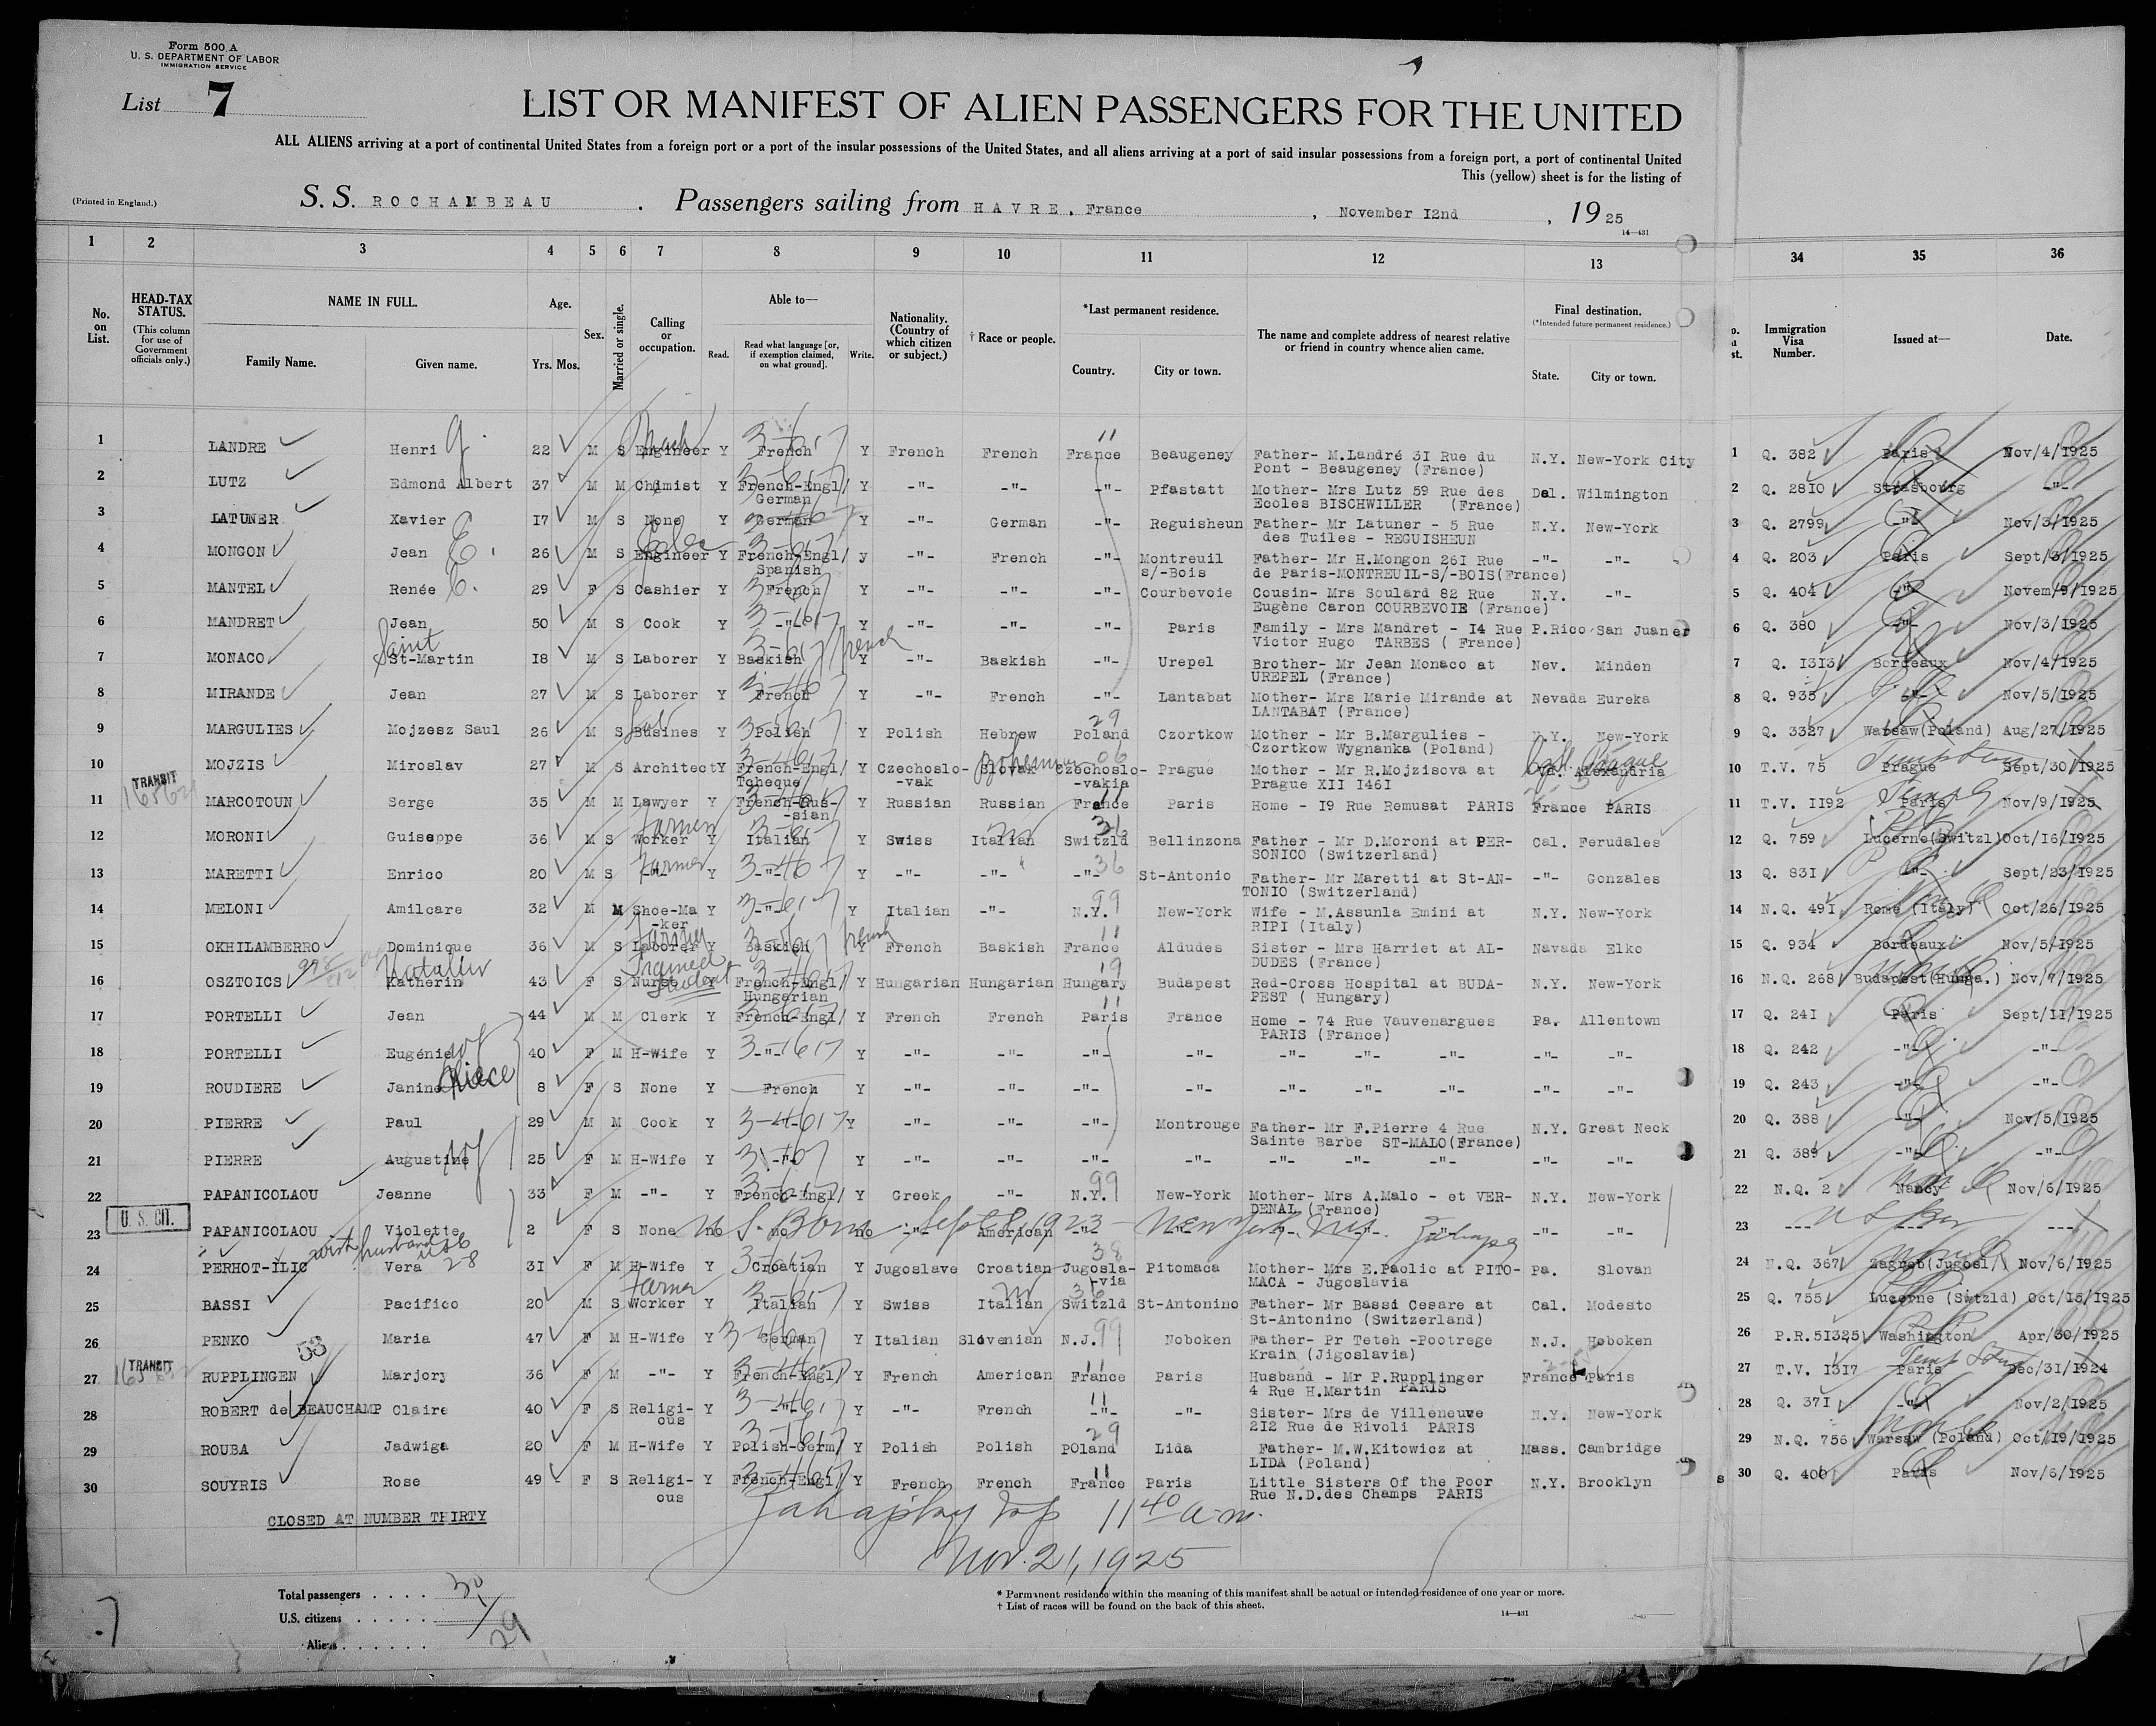 Form 500 A
U. S. DEPARTMENT OF LABOR
IMMIGRATION SERVICE
List 7
LIST OR MANIFEST OF ALIEN PASSENGERS FOR THE UNITED
ALL ALIENS arriving at a port of continental United States from a foreign port or a port of the insular possessions of the United States, and all aliens arriving at a port of said insular possessions from a foreign port, a port of continental United
This (yellow) sheet is for the listing of
(Printed in England.)
S. S. ROCHAMBEAU . Passengers sailing from HAVRE, France , November I2nd , 19 25
14—431
1 2 3 4 5 6 7 8 9 10 11 12 13 34 35 36
No. on List.
HEAD-TAX STATUS.
(This column for use of Government officials only.)
NAME IN FULL.
Family Name. Given name.
Age.
Yrs. Mos.
Sex.
Married or single.
Calling or occupation.
Able to—
Read. Read what language [or, if exemption claimed, on what ground]. Write.
Nationality. (Country of which citizen or subject.)
† Race or people.
*Last permanent residence.
Country. City or town.
The name and complete address of nearest relative or friend in country whence alien came.
Final destination.
(*Intended future permanent residence.)
State. City or town.
Immigration Visa Number.
Issued at—
Date.
1 LANDRE Henri 22 M S Engineer Y French Y French French France Beaugeney Father- M.Landré 3I Rue du N.Y. New-York City 1 Q. 382 Paris Nov/4/1925
Pont - Beaugeney (France)
2 LUTZ Edmond Albert 37 M M Chimist Y French-Engl/ Y -"- -"- -"- Pfastatt Mother- Mrs Lutz 59 Rue des Del. Wilmington 2 Q. 28I0 Strasbourg -"-
German Ecoles BISCHWILLER (France)
3 LATUNER Xavier I7 M S None Y German Y -"- German -"- Reguisheun Father- Mr Latuner - 5 Rue N.Y. New-York 3 Q. 2799 -"- Nov/3/1925
des Tuiles - REGUISHEUN
4 MONGON Jean E. 26 M S Engineer Y French-Engl/ y -"- French -"- Montreuil Father- Mr H.Mongon 26I Rue -"- -"- 4 Q. 203 Paris Sept/3/1925
Spanish s/-Bois de Paris-MONTREUIL-S/-BOIS(France)
5 MANTEL Renée 29 F S Cashier Y French Y -"- -"- -"- Courbevoie Cousin- Mrs Soulard 82 Rue N.Y. -"- 5 Q. 404 -"- Novem/9/1925
Eugène Caron COURBEVOIE (France)
6 MANDRET Jean 50 M S Cook Y -"- Y -"- -"- -"- Paris Family - Mrs Mandret - I4 Rue P.Rico San Juan 6 Q. 380 -"- Nov/3/1925
Saint Victor Hugo TARBES ( France)
7 MONACO St-Martin I8 M S Laborer Y Baskish French Y -"- Baskish -"- Urepel Brother- Mr Jean Monaco at Nev. Minden 7 Q. I3I3 Bordeaux Nov/4/1925
UREPEL (France)
8 MIRANDE Jean 27 M S Laborer Y French Y -"- French -"- Lantabat Mother- Mrs Marie Mirande at Nevada Eureka 8 Q. 935 -"- Nov/5/1925
LANTABAT (France)
9 MARGULIES Mojzesz Saul 26 M S Busines Y Polish Y Polish Hebrew Poland Czortkow Mother - Mr B.Margulies - N.Y. New-York 9 Q. 3327 Warsaw(Poland) Aug/27/1925
Czortkow Wygnanka (Poland)
10 MOJZIS Miroslav 27 M S Architect Y French-Engl/ Y Czechoslo- Slovak Bohemian Czechoslo- Prague Mother - Mr R.Mojzisova at Alexandria Prague 10 T.V. 75 Prague Sept/30/1925
TRANSIT Tcheque -vak -vakia Prague XII I46I
11 MARCOTOUN Serge 35 M M Lawyer Y French-Rus- Y Russian Russian France Paris Home - I9 Rue Remusat PARIS France PARIS 11 T.V. II92 Paris Nov/9/1925
-sian
12 MORONI Guiseppe 36 M S Worker Farmer Y Italian Y Swiss Italian Switzld Bellinzona Father - Mr D.Moroni at PER- Cal. Ferudales 12 Q. 759 Lucerne(Switzl) Oct/I6/1925
SONICO (Switzerland)
13 MARETTI Enrico 20 M S Farmer Y -"- Y -"- -"- -"- St-Antonio Father- Mr Maretti at St-AN- -"- Gonzales 13 Q. 83I -"- Sept/23/1925
TONIO (Switzerland)
14 MELONI Amilcare 32 M M Shoe-Ma Y -"- Y Italian -"- N.Y. New-York Wife - M.Assunla Emini at N.Y. New-York 14 N.Q. 49I Rome (Italy) Oct/26/1925
-ker RIPI (Italy)
15 OKHILAMBERRO Dominique 36 M S Laborer Farmer Y Baskish French Y French Baskish France Aldudes Sister - Mrs Harriet at AL- Navada Elko 15 Q. 934 Bordeaux Nov/5/1925
DUDES (France)
16 OSZTOICS Katherin Katalin 43 F S Nurse Trained Student Y French-Engl/ Y Hungarian Hungarian Hungary Budapest Red-Cross Hospital at BUDA- N.Y. New-York 16 N.Q. 268 Budapest(Hunga.) Nov/7/1925
Hungarian PEST ( Hungary)
17 PORTELLI Jean 44 M M Clerk Y French-Engl/ Y French French Paris France Home - 74 Rue Vauvenargues Pa. Allentown 17 Q. 24I Paris Sept/II/1925
PARIS (France)
18 PORTELLI Eugénie wf 40 F M H-Wife Y -"- Y -"- -"- -"- -"- -"- -"- -"- -"- -"- 18 Q. 242 -"- -"-
19 ROUDIERE Janine Niece 8 F S None Y French Y -"- -"- -"- -"- -"- -"- -"- -"- -"- 19 Q. 243 -"- -"-
20 PIERRE Paul 29 M M Cook Y Y -"- -"- -"- Montrouge Father- Mr F.Pierre 4 Rue N.Y. Great Neck 20 Q. 388 -"- Nov/5/1925
Sainte Barbe ST-MALO(France)
21 PIERRE Augustine wf 25 F M H-Wife Y -"- Y -"- -"- -"- -"- -"- -"- -"- -"- -"- 21 Q. 389 -"- -"-
22 PAPANICOLAOU Jeanne 33 F M -"- Y French-Engl/ Y Greek -"- N.Y. New-York Mother- Mrs A.Malo - et VER- N.Y. New-York 22 N.Q. 2 Nancy Nov/6/1925
U. S. CIT. DENAL (France)
23 PAPANICOLAOU Violette 2 F S None no no no -"- American -"- -"- -"- -"- -"- -"- 23 --- --- ---
U. S. Born Sept 8, 1923 - New York, N.Y.
with husband
24 PERHOT-ILIC Vera 3I F M H-Wife Y Croatian Y Jugoslave Croatian Jugosla- Pitomaca Mother- Mrs E.Paolic at PITO- Pa. Slovan 24 N.Q. 367 Zagreb(Jugosl/) Nov/6/1925
-via MACA - Jugoslavia
25 BASSI Pacifico 20 M S Worker Farmer Y Italian Y Swiss Italian Switzld St-Antonino Father- Mr Bassi Cesare at Cal. Modesto 25 Q. 755 Lucerne (Switzld) Oct/I5/1925
St-Antonino (Switzerland)
26 PENKO Maria 47 F M H-Wife Y German Y Italian Slovenian N.J. Noboken Father- Pr Teteh -Pootrege N.J. Hoboken 26 P.R.5I325 Washington Apr/30/1925
TRANSIT 53 Krain (Jigoslavia)
27 RUPPLINGEN Marjory 36 F M -"- Y French-Engl/ Y French American France Paris Husband - Mr P.Rupplinger France Paris 27 T.V. I3I7 Paris Dec/3I/1924
4 Rue H.Martin PARIS
28 ROBERT de BEAUCHAMP Claire 40 F S Religi- Y -"- Y -"- French -"- -"- Sister- Mrs de Villeneuve N.Y. New-York 28 Q. 37I -"- Nov/2/1925
ous 2I2 Rue de Rivoli PARIS
29 ROUBA Jadwiga 20 F M H-Wife Y Polish-Germ/ Y Polish Polish POland Lida Father- M.W.Kitowicz at Mass. Cambridge 29 N.Q. 756 Warsaw (Poland) Oct/I9/1925
LIDA (Poland)
30 SOUYRIS Rose 49 F S Religi- Y French-Engl/ Y French French France Paris Little Sisters Of the Poor N.Y. Brooklyn 30 Q. 400 Paris Nov/6/1925
ous Rue N.D.des Champs PARIS
CLOSED AT NUMBER THIRTY
11 40 a.m.
Nov. 21, 1925
Total passengers . . . . 30
U.S. citizens . . . . . 1
Aliens . . . . . . 29
* Permanent residence within the meaning of this manifest shall be actual or intended residence of one year or more.
† List of races will be found on the back of this sheet.
14—431